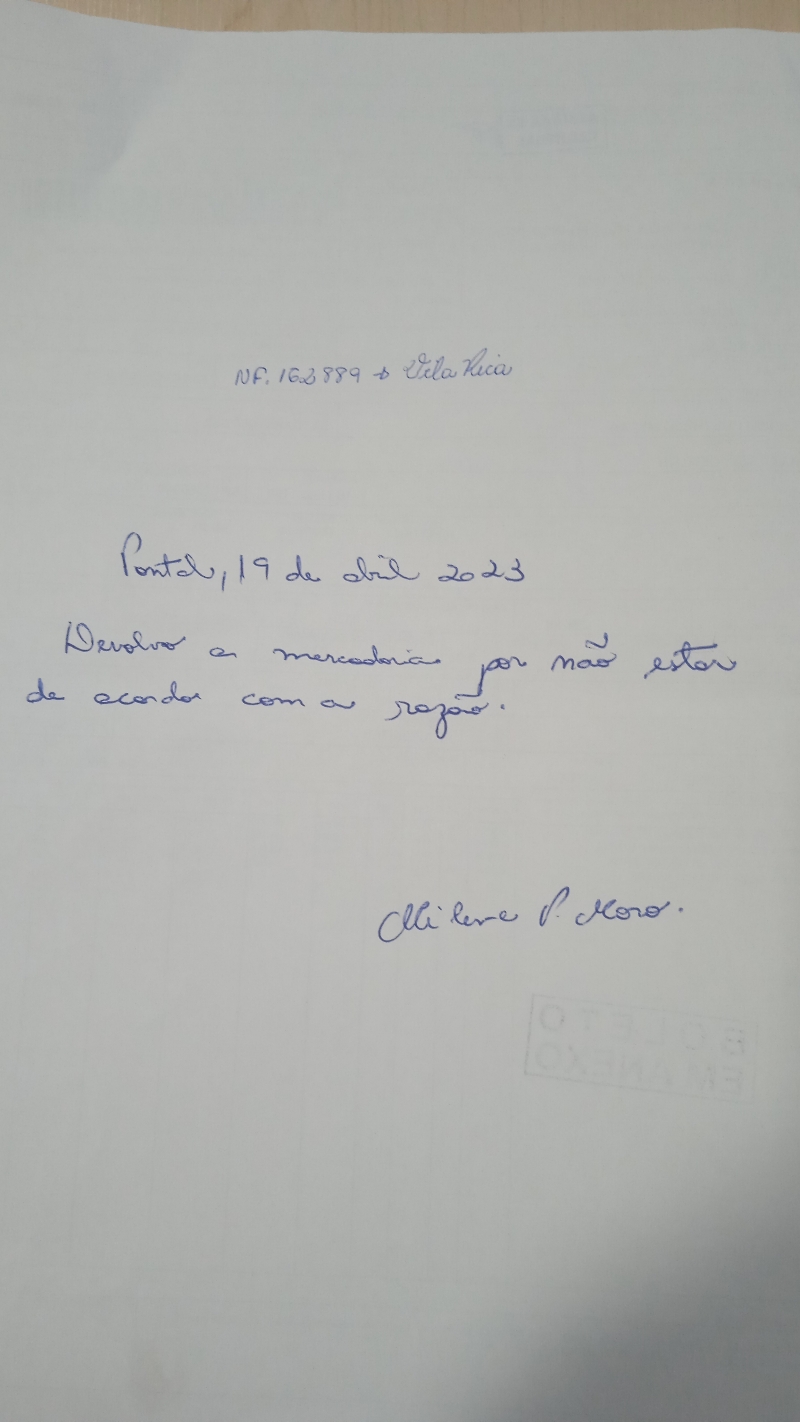 NF. 162889 → Vila Rica
Pontal, 19 de abril 2023
Devolvo a mercadoria por não estar
de acordo com a razão.
Milene P. Moro.
BOLETO
EM ANEXO